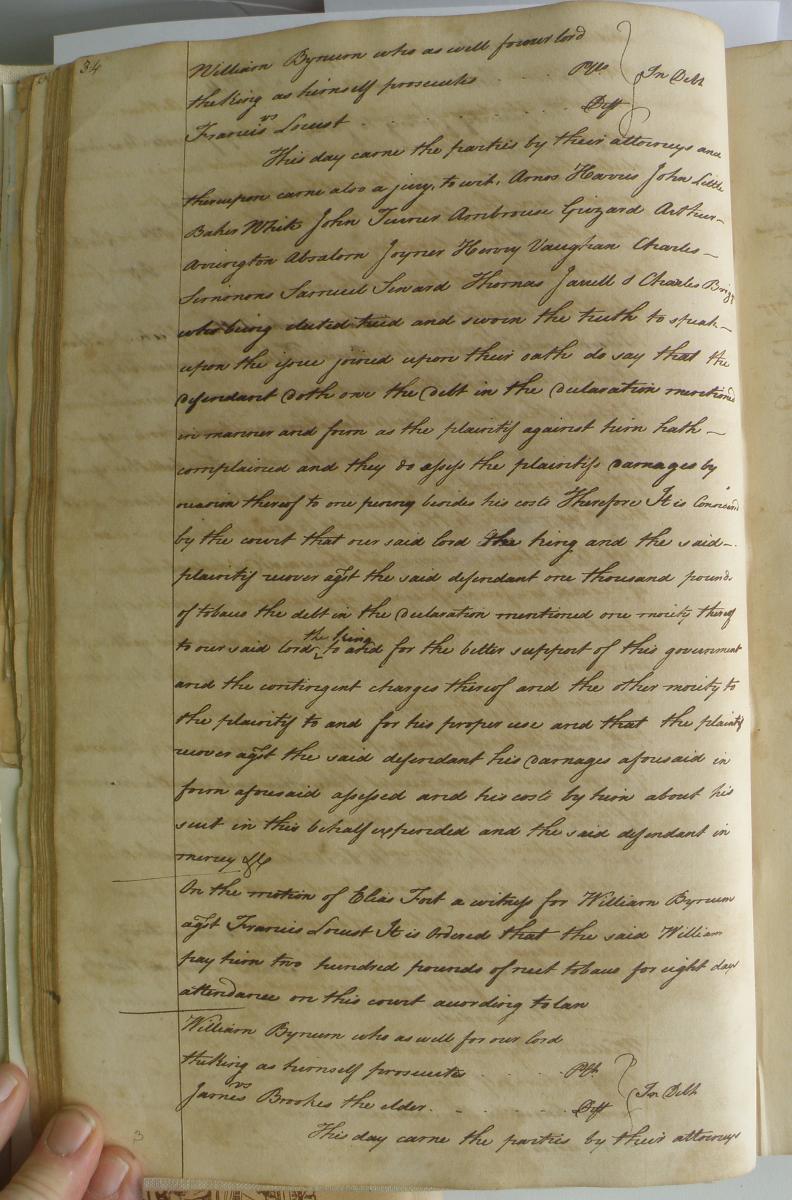 34
William Bynum who as well for our lord
the king as himself prosecutes Plt.
vs In Debt
Francis Locust Deft
This day came the parties by their attorneys and
thereupon came also a jury, to wit, Amos Harris John Little
Baker White John Turner Ambrouse Gizzard Arthur
Arrington Absalom Joyner Henry Vaughan Charles
Simmons Samuel Seward Thomas Jarrell & Charles Briggs
who being elected tried and sworn the truth to speak
upon the issue joined upon their oath do say that the
defendant doth owe the Debt in the Declaration mentioned
in manner and form as the plaintif against him hath
complained and they do assess the plaintifs damages by
reason thereof to one penny besides his costs Therefore It is Considered
by the court that our said lord the king and the said
plaintif recover agst the said defendant one thousand pounds
of tobacco the debt in the Declaration mentioned one moiety thereof
to our said lord the king to and for the better support of this government
and the contingent charges thereof and the other moiety to
the plaintif to and for his proper use and that the plaintif
recover agst the said defendant his Damages aforesaid in
form aforesaid assessed and his costs by him about his
suit in this behalf expended and the said defendant in
mercy &c
On the motion of Elias Fort a witness for William Bynum
agst Francis Locust It is Ordered that the said William
pay him two hundred pounds of neet tobacco for eight days
attendance on this court according to law
William Bynum who as well for our lord
the king as himself prosecutes Plt.
vs In Debt
James Brookes the elder. Deft
This day came the parties by their attorneys
3